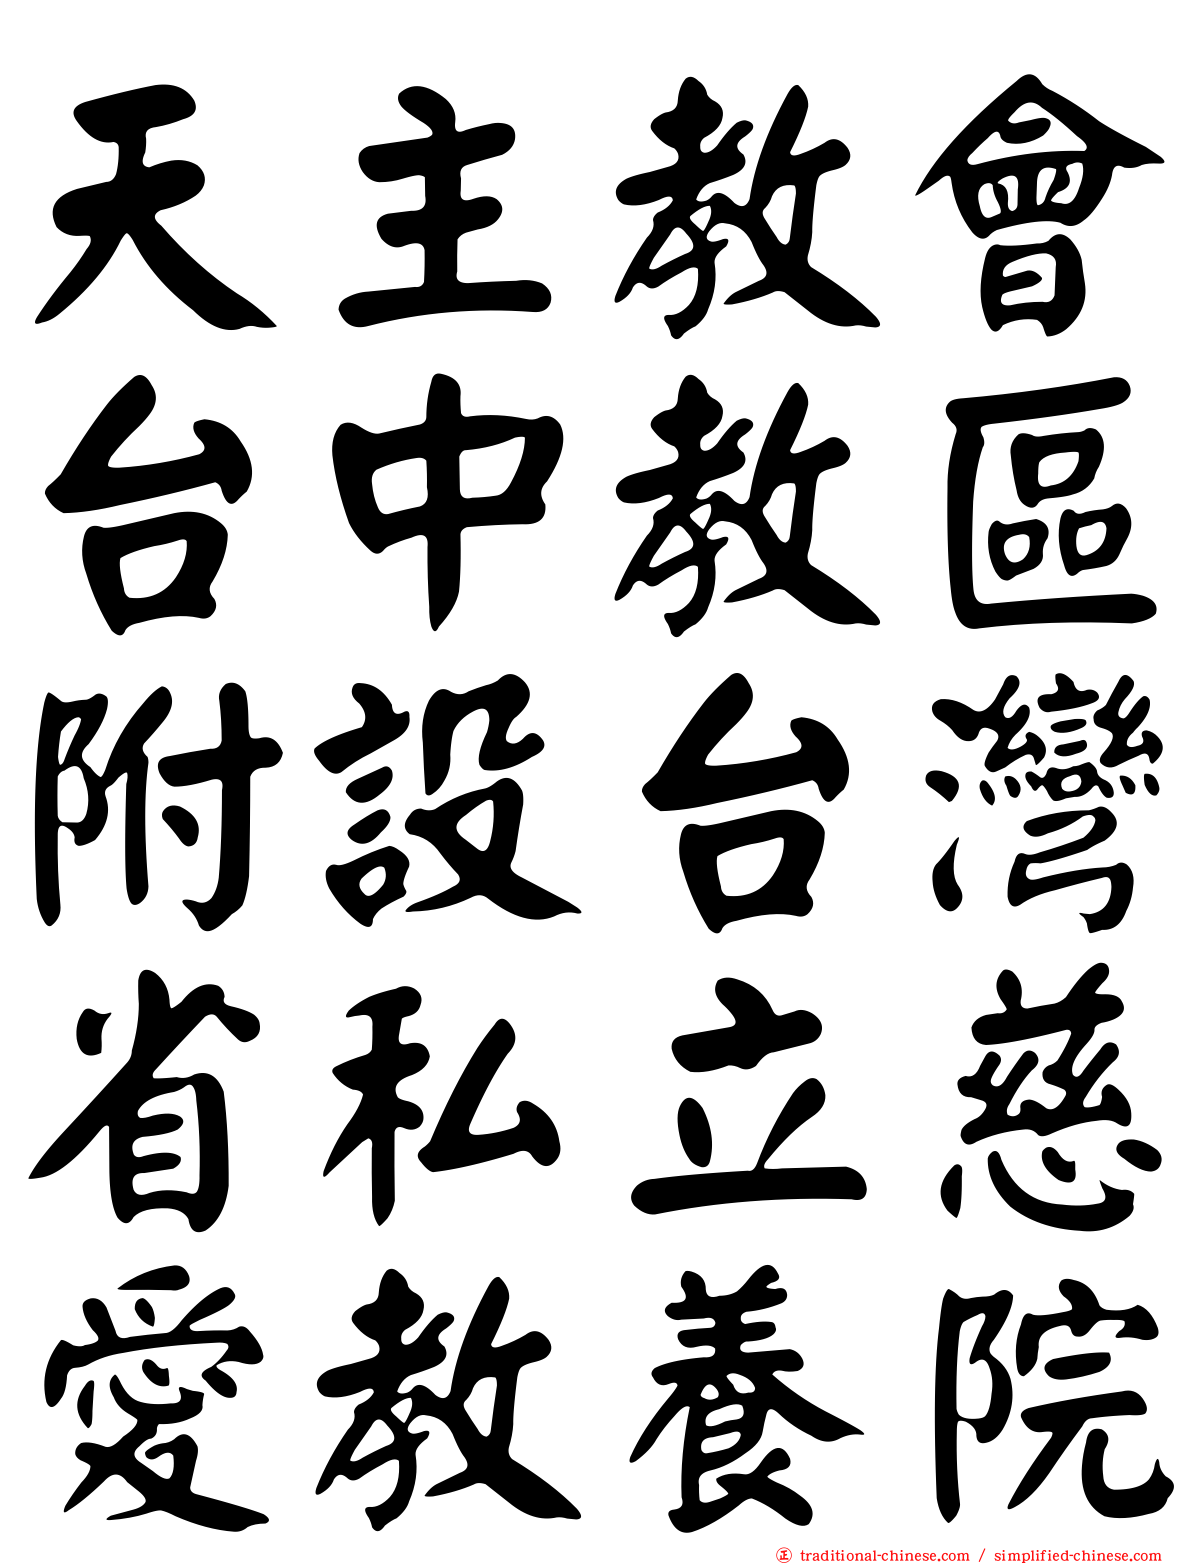 天主教會
台中教區
附設台灣
省私立慈
愛教養院
正 traditional-chinese.com / simplified-chinese.com